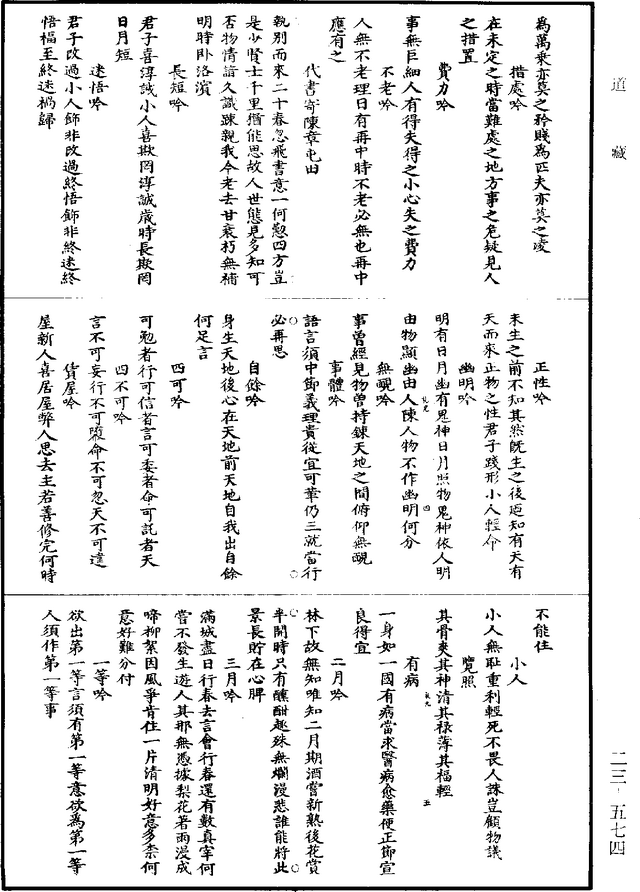 道藏
為萬乘亦莫之矜賤為匹夫亦莫之凌
措處吟
在未定之時當難處之地方事之危疑見人
之措置
費力吟
事無巨細人有得失得之小心失之費力
不老吟
人無不老理日有再中時不老必無也再中
應有之
代書寄陳章屯田
執別而來二十春忽飛書意一何懃四方豈
是少賢士千里猶能思故人世態見多知可
否物情諳久識踈親我今老去甘衰朽無補
明時卧洛濱
長短吟
君子喜淳誠小人喜欺罔淳誠歲時長欺罔
日月短
迷悟吟
君子改過小人飾非改過終悟飾非終迷終
悟福至終迷禍歸
正性吟
未生之前不知其然既生之後迺知有天有
天而來正物之性君子踐形小人輕命
幽明吟
明有日月幽有鬼神日月照物鬼神依人明
由物顯幽由人陳人物不作幽明何分
四
無覗吟
事曾經見物曾持鍊天地之間俯仰無覗
事體吟
語言須中節義理貴從宜可華仍三就當行
必再思
自餘吟
身生天地後心在天地前天地自我出自餘
何足言
四可吟
可勉者行可信者言可委者命可託者天
四不可吟
言不可妄行不可隳命不可忽天不可違
賃屋吟
屋新人喜居屋弊人思去主若善修完何時
不能住
小人
小人無恥重利輕死不畏人誅豈顧物議
覽照
其骨爽其神清其祿薄其福輕
五
有病
一身如一國有病當求醫病愈藥便正節宣
良得宜
二月吟
林下故無知唯知二月期酒嘗新熟後花賞
半開時只有醺酣趣殊無爛漫悲誰能將此
景長貯在心脾
三月吟
滿城盡日行春去言會行春還有數真宰何
嘗不發生遊人其那無憑據梨花著雨漫成
啼柳絮因風爭肯住一片清明好意多柰何
意好難分付
一等吟
欲出第一等言須有第一等意欲為第一等
人須作第一等事
二三·五七四